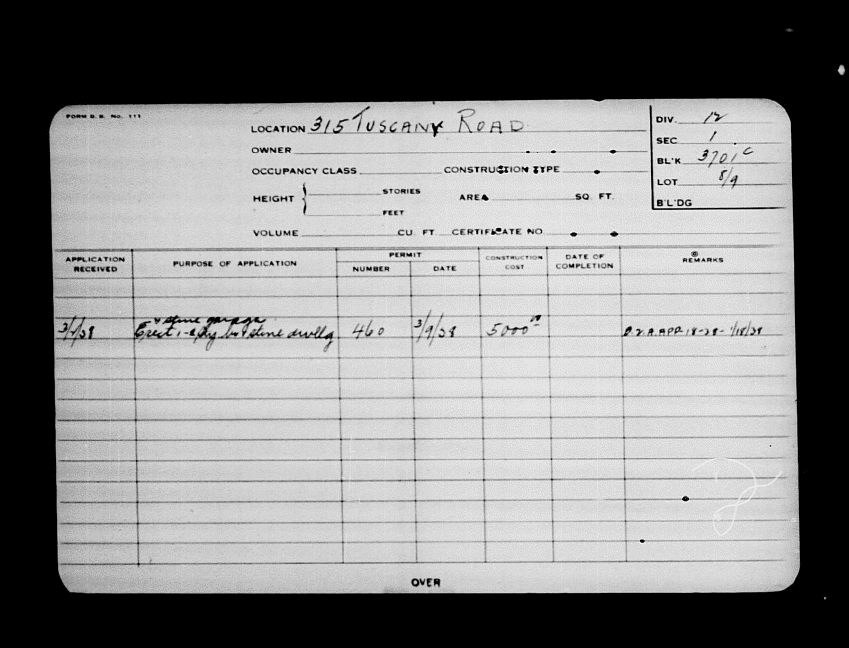 FORM B. B. No. 111
LOCATION 315 TUSCANY ROAD
OWNER
OCCUPANCY CLASS CONSTRUCTION TYPE
HEIGHT { STORIES AREA SQ. FT.
FEET
VOLUME CU. FT CERTIFICATE NO.
DIV. 12
SEC 1
BL'K 3701 C
LOT 8/9
B'L'DG
APPLICATION RECEIVED PURPOSE OF APPLICATION PERMIT NUMBER DATE CONSTRUCTION COST DATE OF COMPLETION REMARKS
+ stone garage
Erect stone dwllg 460 3/9/28 5000
OVER